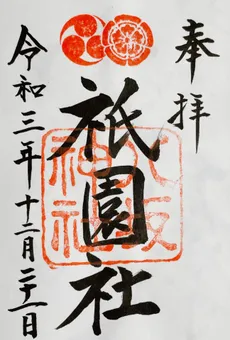 奉拝
八坂神社
祇園社
令和三年十二月二十一日